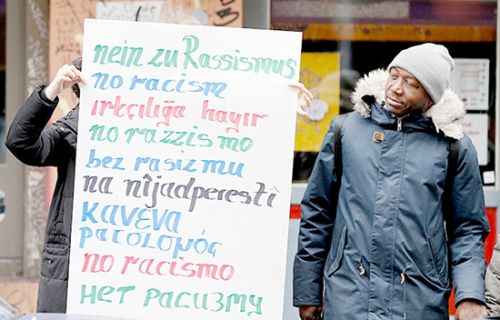 nein zu Rassismus
no racism
ırkçılığa hayır
no razzismo
bez rasizmu
na nîjadperestî
κανενα
ρατσισμός
no racismo
нет расизму